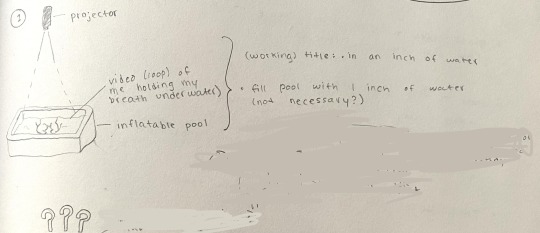 ①
projector
video (loop) of
me holding my
breath underwater)
inflatable pool
(working) title: . In an inch of water
• fill pool with 1 inch of water
(not necessary?)
???